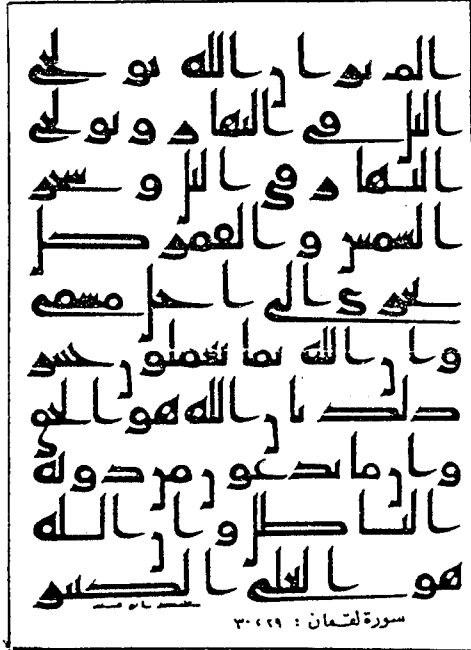 الم تر ان الله يولج
اليل في النهار و يولج
النهار في اليل و سخر
الشمس و القمر كل
يجري الى اجل مسمى
و ان الله بما تعملون خبير
ذلك بان الله هو الحق
و ان ما يدعون من دونه
الباطل و ان الله
هو العلي الكبير
سورة لقمان : ٢٩، ٣٠